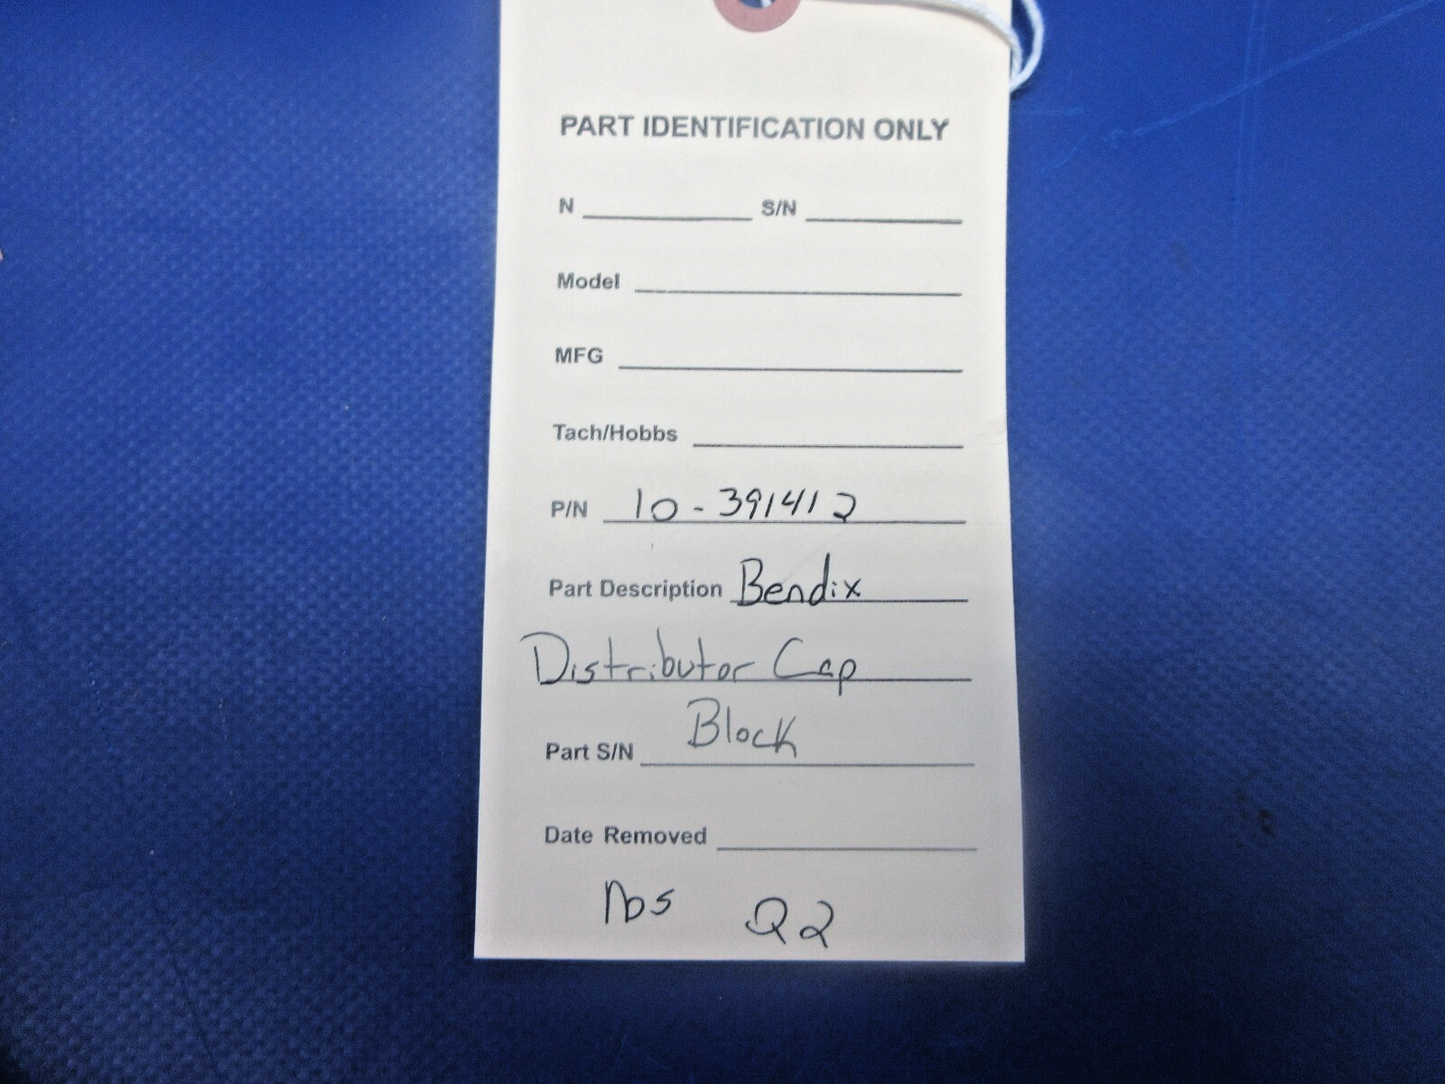 PART IDENTIFICATION ONLY
N S/N
Model
MFG
Tach/Hobbs
P/N 10-391412
Part Description Bendix
Distributor Cap
Block
Part S/N
Date Removed
nos Q2